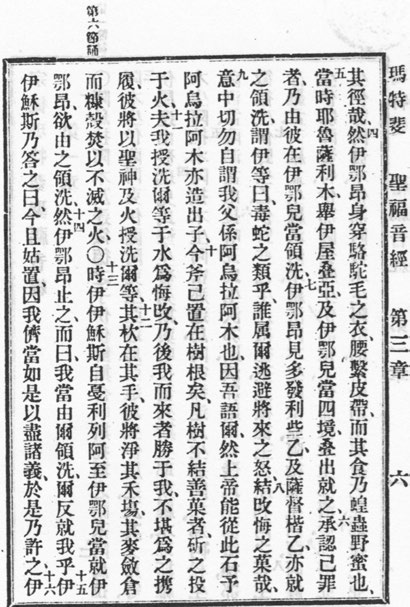 瑪特斐 聖福音經 第三章 六
其徑哉四然伊鄂昂身穿駱駝毛之衣腰繫皮帶而其食乃蝗蟲野蜜也
五當時耶魯薩利木舉伊屋叠亞及伊鄂兒當四境叠出就之六承認己罪
者乃由彼在伊鄂兒當領洗七伊鄂昂見多發利些乙及薩督楷乙亦就
之領洗謂伊等曰毒蛇之類乎誰属爾逃避將來之怒八結改悔之菓哉
九意中切勿自謂我父係阿烏拉阿木也因吾語爾然上帝能從此石予
阿烏拉阿木亦造出子十今斧己置在樹根矣凡樹不結善菓者斫之投
于火十一夫我授洗爾等于水爲悔改乃後我而來者勝于我不堪爲之携
履彼將以聖神及火授洗爾等十二其杴在其手彼將淨其禾塲其麥斂倉
而糠殼焚以不滅之火○十三時伊伊穌斯自戞利列阿至伊鄂兒當就伊
鄂昂欲由之領洗十四然伊鄂昂止之而曰我當由爾領洗爾反就我乎十五伊
伊穌斯乃答之曰今且姑置因我儕當如是以盡諸義於是乃許之十六伊
第六節誦